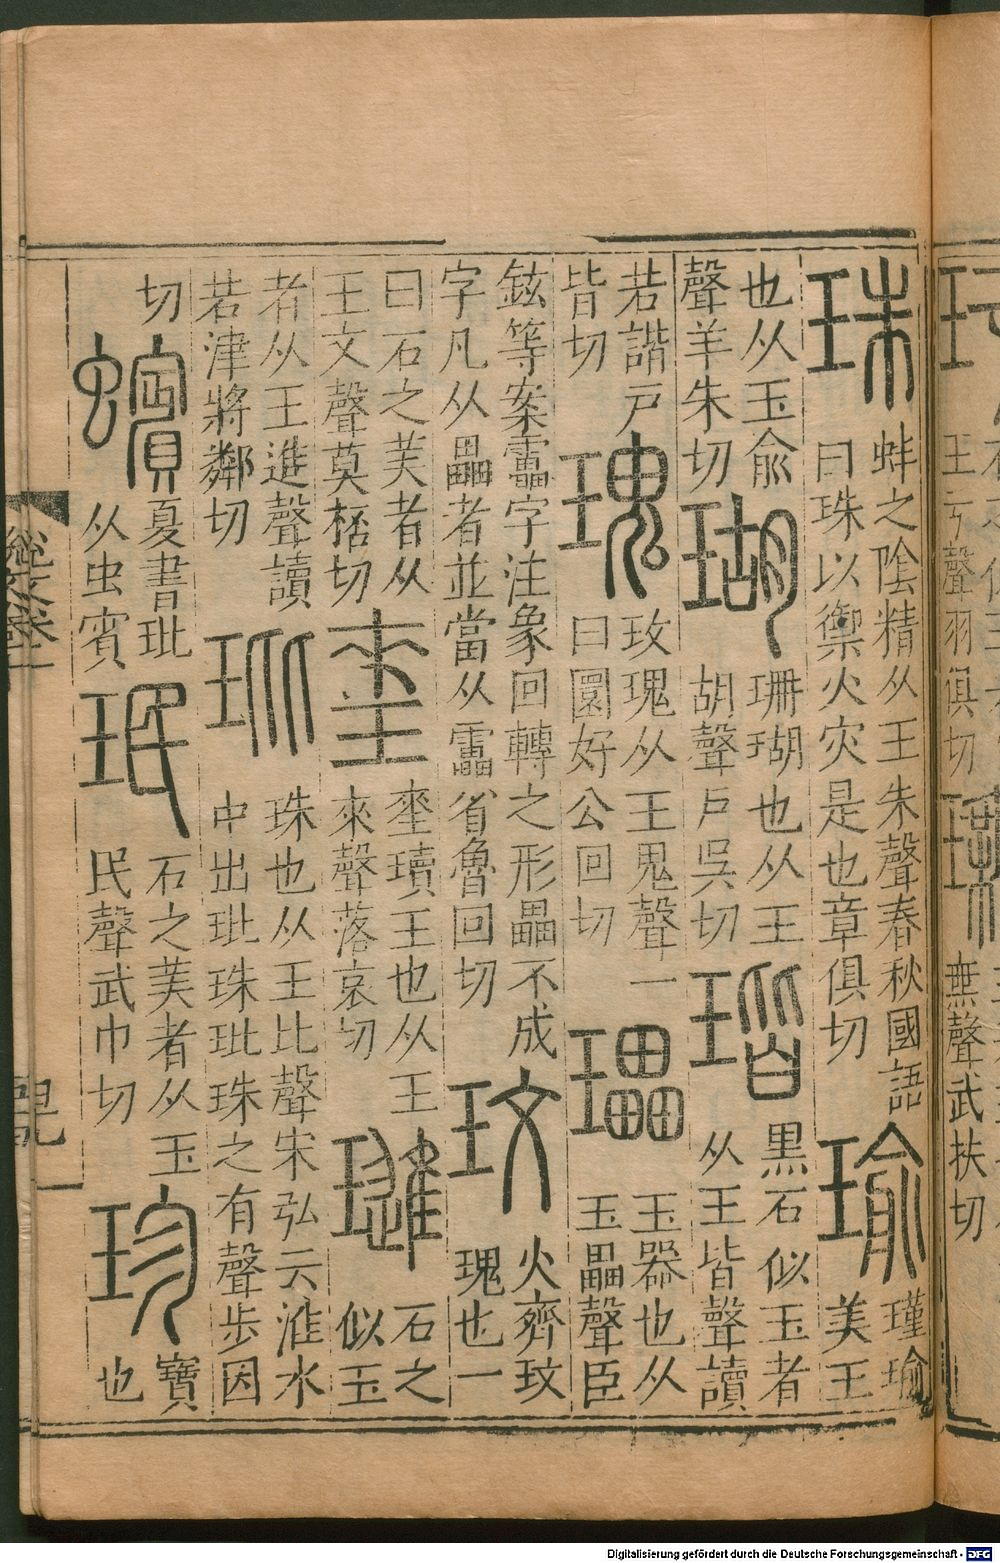 王亏聲羽俱切
無聲武扶切
珠
蚌之陰精从王朱聲春秋國語
曰珠以禦火灾是也章俱切
瑜
瑾瑜
美王
也从玉俞
聲羊朱切
瑚
珊瑚也从王
胡聲戶吳切
瑎
黑石似玉者
从王皆聲讀
若諧戶
皆切
瑰
玫瑰从王鬼聲一
曰圜好公回切
㼍
玉器也从
玉畾聲臣
鉉等案靁字注象回轉之形畾不成
字凡从畾者並當从靁省魯回切
玟
火齊玟
瑰也一
曰石之美者从
王文聲莫桮切
琜
琜瓄王也从王
來聲落哀切
璡
石之
似玉
者从王進聲讀
若津將鄰切
玭
珠也从王比聲宋弘云淮水
中出玭珠玭珠之有聲步因
切
蠙
夏書玭
从虫賓
珉
石之美者从玉
民聲武巾切
珍
寶
也
說文卷一
Digitalisierung gefördert durch die Deutsche Forschungsgemeinschaft - DFG